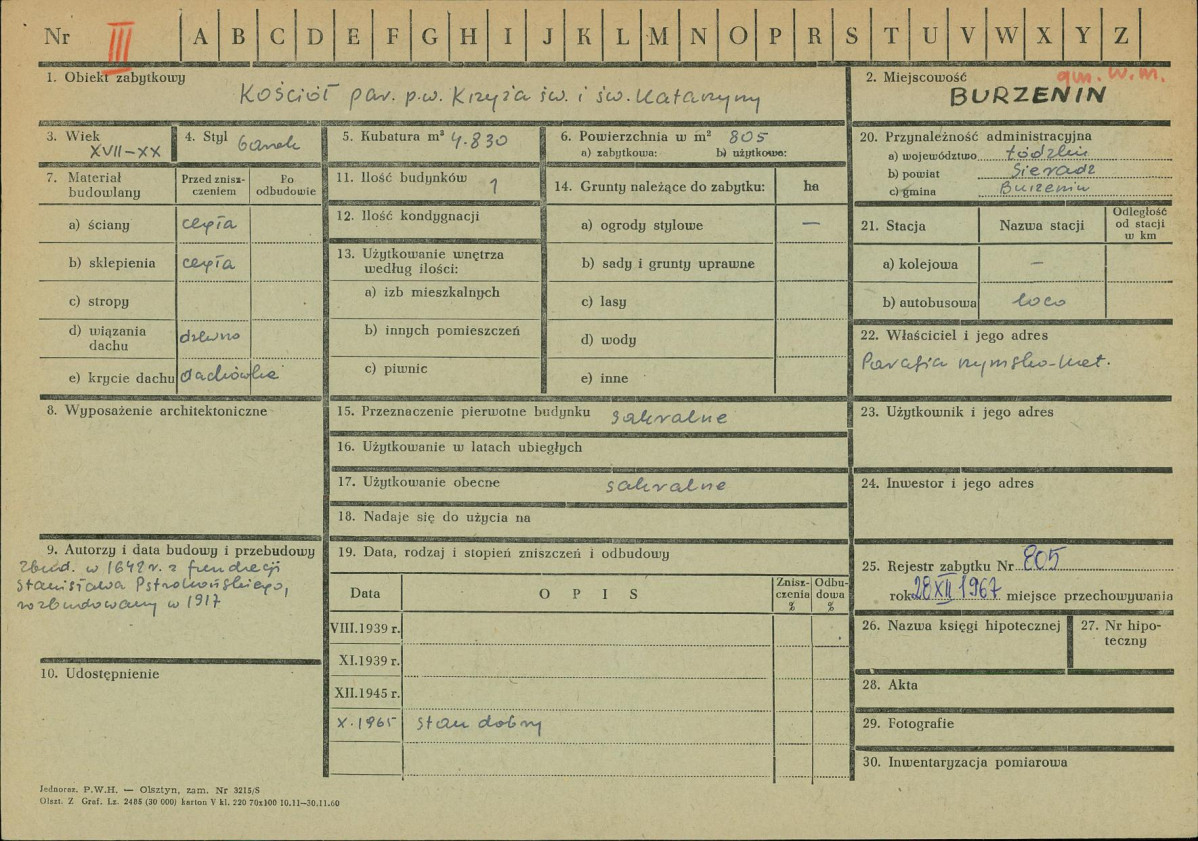 Nr III A B C D E F G H I J K L M N O P R S T U V W X Y Z
1. Obiekt zabytkowy
Kościół par. p.w. Krzyża św. i św. Katarzyny
2. Miejscowość gm. w.m.
BURZENIN
3. Wiek
XVII–XX
4. Styl barok
5. Kubatura m³ 4.830
6. Powierzchnia w m² 805
a) zabytkowa: b) użytkowa:
7. Materiał budowlany
Przed zniszczeniem
Po odbudowie
a) ściany cegła
b) sklepienia cegła
c) stropy
d) wiązania dachu drewno
e) krycie dachu dachówka
8. Wyposażenie architektoniczne
9. Autorzy i data budowy i przebudowy
zbud. w 1642 r. z fundacji
Stanisława Pstrokońskiego,
rozbudowany w 1917
10. Udostępnienie
11. Ilość budynków 1
12. Ilość kondygnacji
13. Użytkowanie wnętrza
według ilości:
a) izb mieszkalnych
b) innych pomieszczeń
c) piwnic
14. Grunty należące do zabytku: ha
a) ogrody stylowe —
b) sady i grunty uprawne
c) lasy
d) wody
e) inne
15. Przeznaczenie pierwotne budynku sakralne
16. Użytkowanie w latach ubiegłych
17. Użytkowanie obecne sakralne
18. Nadaje się do użycia na
19. Data, rodzaj i stopień zniszczeń i odbudowy
Data O P I S Zniszczenia % Odbudowa %
VIII.1939 r.
XI.1939 r.
XII.1945 r.
X.1965 stan dobry
20. Przynależność administracyjna
a) województwo łódzkie
b) powiat Sieradz
c) gmina Burzenin
21. Stacja Nazwa stacji Odległość od stacji w km
a) kolejowa –
b) autobusowa loco
22. Właściciel i jego adres
Parafia rzymsko-kat.
23. Użytkownik i jego adres
24. Inwestor i jego adres
25. Rejestr zabytku Nr 805
rok 28 XII 1967 miejsce przechowywania
26. Nazwa księgi hipotecznej
27. Nr hipoteczny
28. Akta
29. Fotografie
30. Inwentaryzacja pomiarowa
Jednoraz. P.W.H. — Olsztyn, zam. Nr 3215/S
Olszt. Z Graf. Lz. 2485 (30 000) karton V kl. 220 70x100 10.11—30.11.60